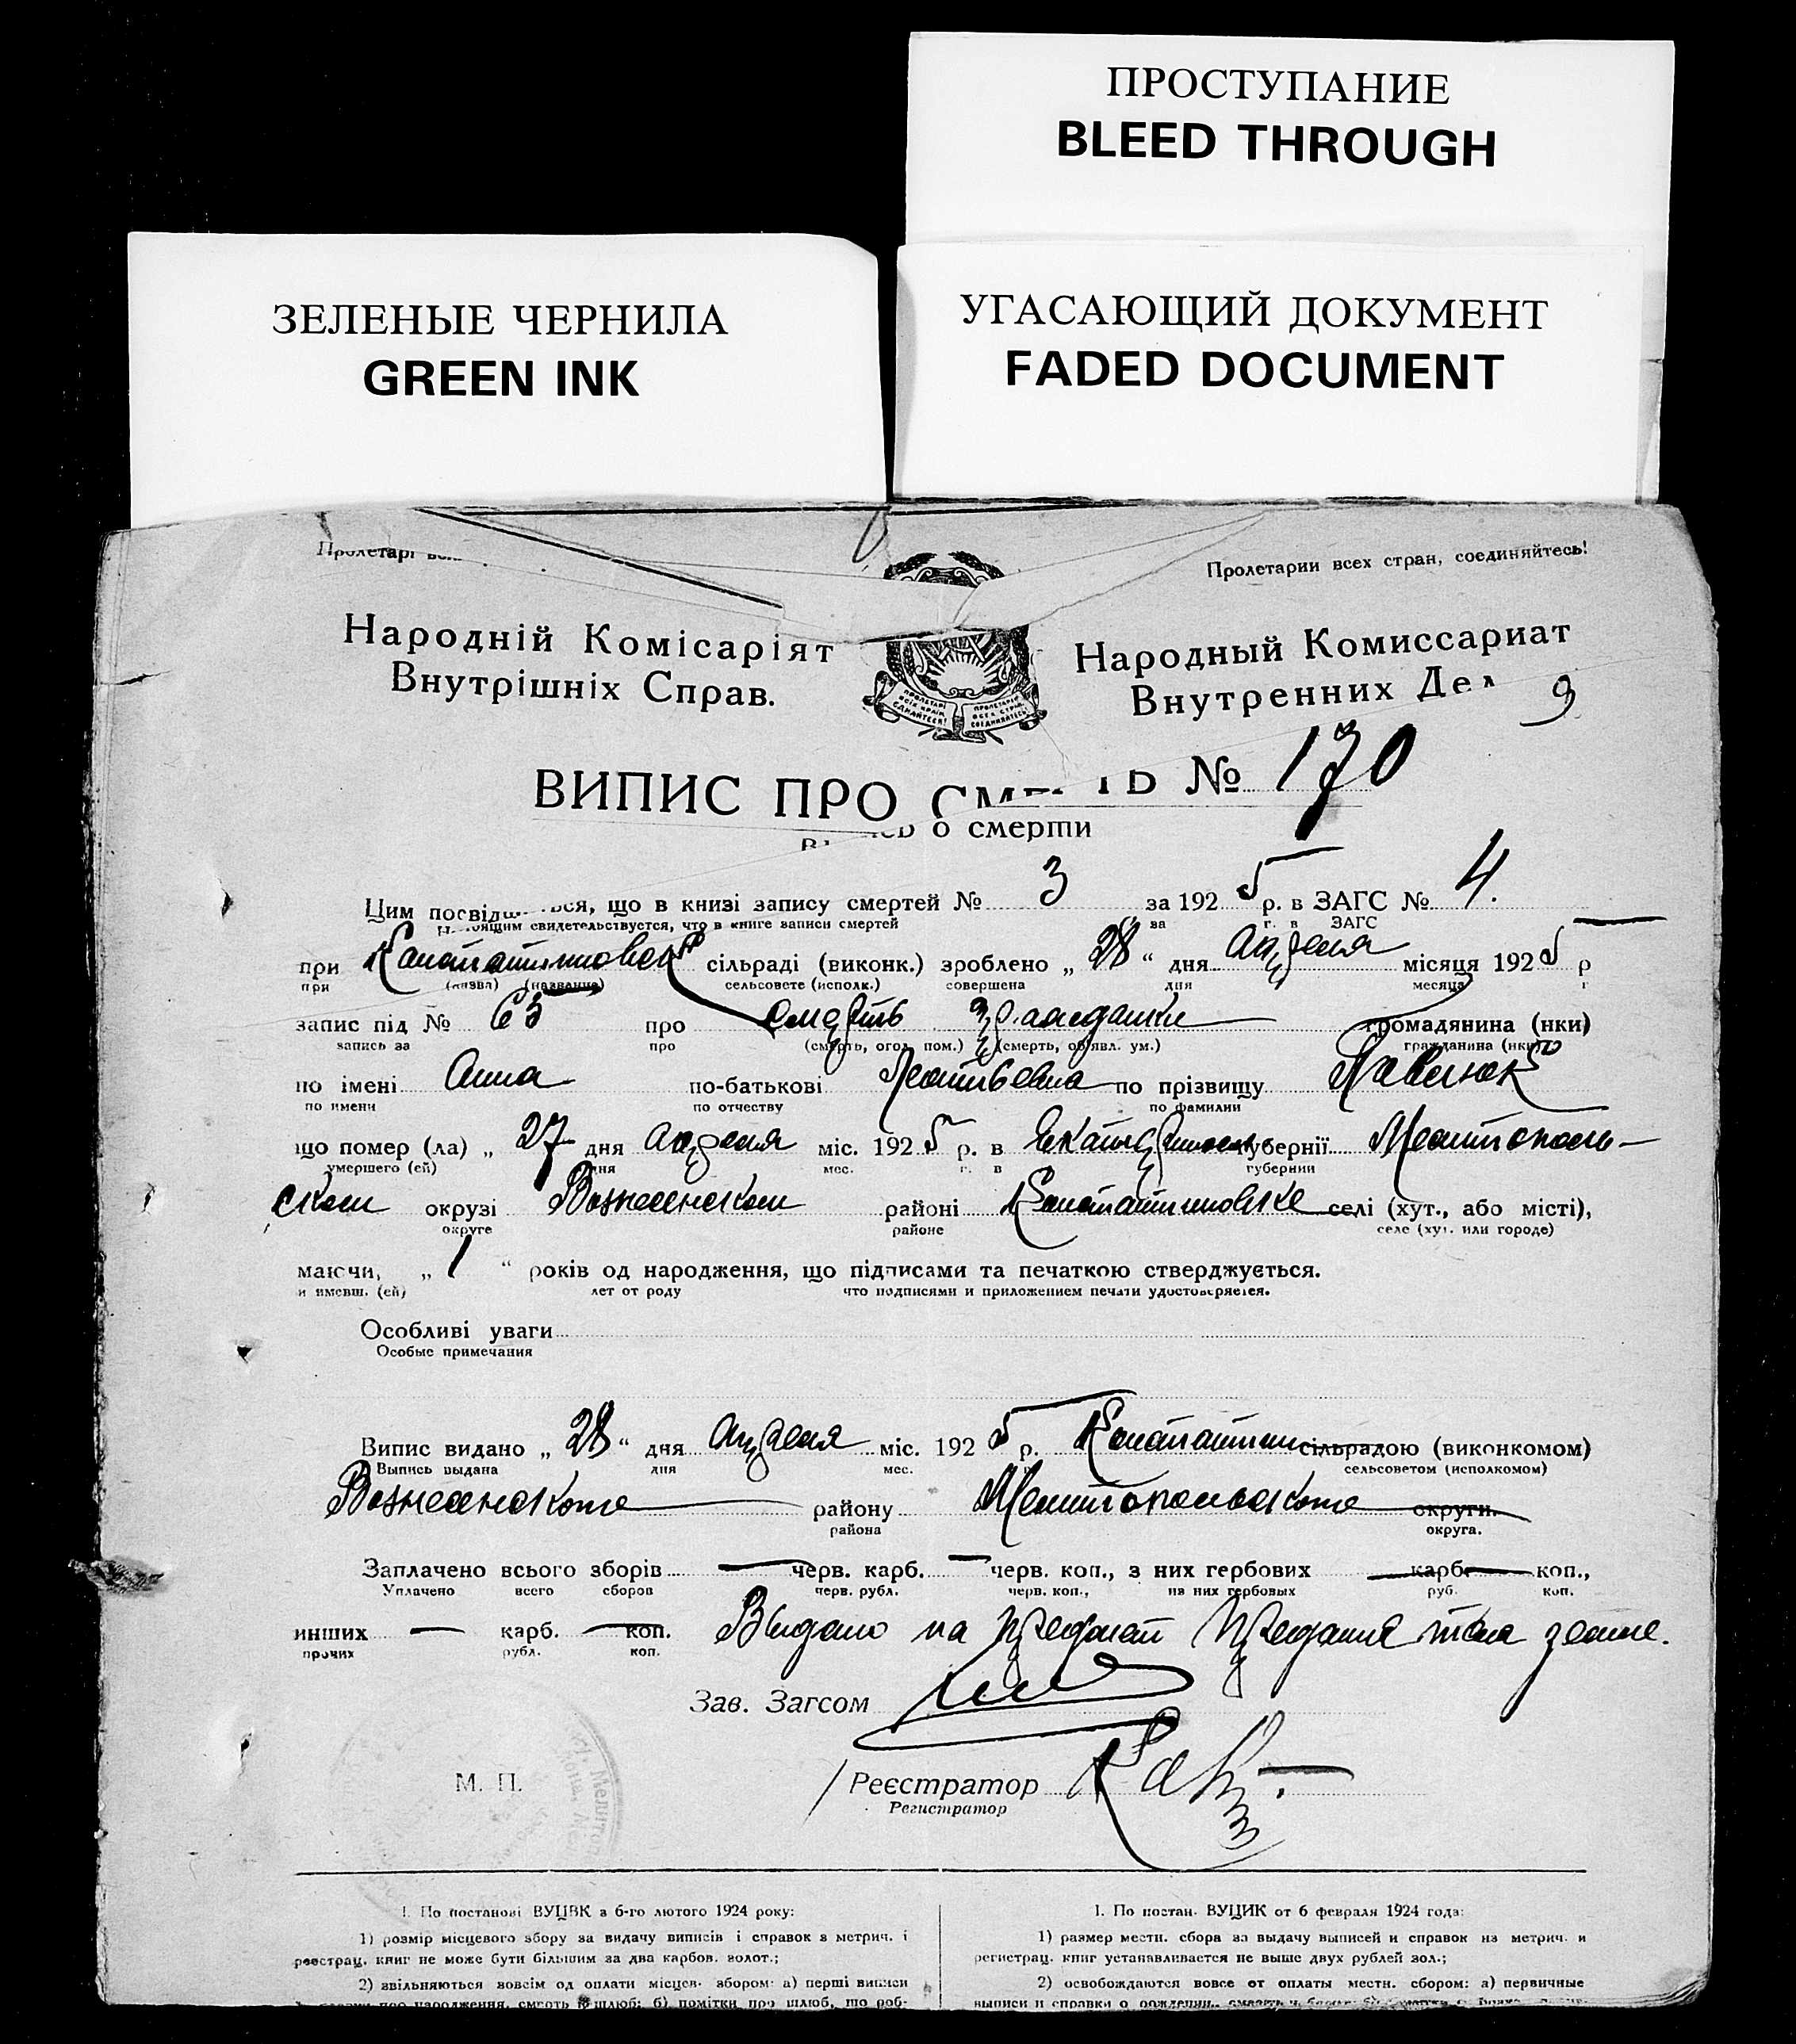 ПРОСТУПАНИЕ
BLEED THROUGH
ЗЕЛЕНЫЕ ЧЕРНИЛА
GREEN INK
УГАСАЮЩИЙ ДОКУМЕНТ
FADED DOCUMENT
Пролетарі
Пролетарии всех стран, соединяйтесь!
Народній Комісаріят
Внутрішніх Справ.
Народный Комиссариат
Внутренних Дел
9
ВИПИС ПРО СМЕ ТЬ № 170
о смерти
Цим посвід ься, що в книзі запису смертей № 3 за 1925 р. в ЗАГС № 4.
оящим свидетельствуется, что в книге записи смертей за г. в ЗАГС
при сільраді (виконк.) зроблено „ 28 “ дня апреля місяця 1925 р
при (назва) (название) сельсовете (исполк.) совершена дня месяца г
запис під № 65 про смерть гражданки громадянина (нки)
запись за про (смерть, огол. пом.) (смерть, об'явл. ум.) гражданина (нки)
по імені Анна по-батькові Леонтьевна по прізвищу Павлюк
по имени по отчеству по фамилии
що помер (ла) „ 27 дня апреля міс. 1925 р. в губернії Мелитополь-
умершего (ей) дня мес. г. в губернии
ском окрузі Вознесенском районі Константиновке селі (хут., або місті),
округе районе селе (хут. или городе)
маючи, „ 1 “ років од народження, що підписами та печаткою стверджується.
и имевш. (ей) лет от роду что подписями и приложением печати удостоверяется.
Особливі уваги
Особые примечания
Випис видано „ 28 “ дня апреля міс. 1925 р. Константин сільрадою (виконкомом)
Выпись выдана дня мес. сельсоветом (исполкомом)
Вознесенского району Мелитопольского округи.
района округа.
Заплачено всього зборів — черв. карб. — черв. коп., з них гербових — карб. — коп.,
Уплачено всего сборов черв. рубл. черв. коп., из них гербовых руб. коп.
инших — карб. — коп. Выдано на предмет предания тела земле.
прочих рубл. коп.
Зав. Загсом
М. П.
Реєстратор
Регистратор
1. По постанові ВУЦВК з 6-го лютого 1924 року:
1) розмір місцевого збору за видачу виписів і справок з метрич. і
реєстрац. книг не може бути більшим за два карбов. золот.;
2) звільняються зовсім од оплати місцев. збором: а) перші виписи
про народження, смерть й шлюб; б) помітки про шлюб, що роб-
1. По постан. ВУЦИК от 6 февраля 1924 года:
1) размер местн. сбора за выдачу выписей и справок из метрич. и
регистрац. книг устанавливается не выше двух рублей зол.;
2) освобождаются вовсе от оплаты местн. сбором: а) первичные
выписи и справки о рождении,